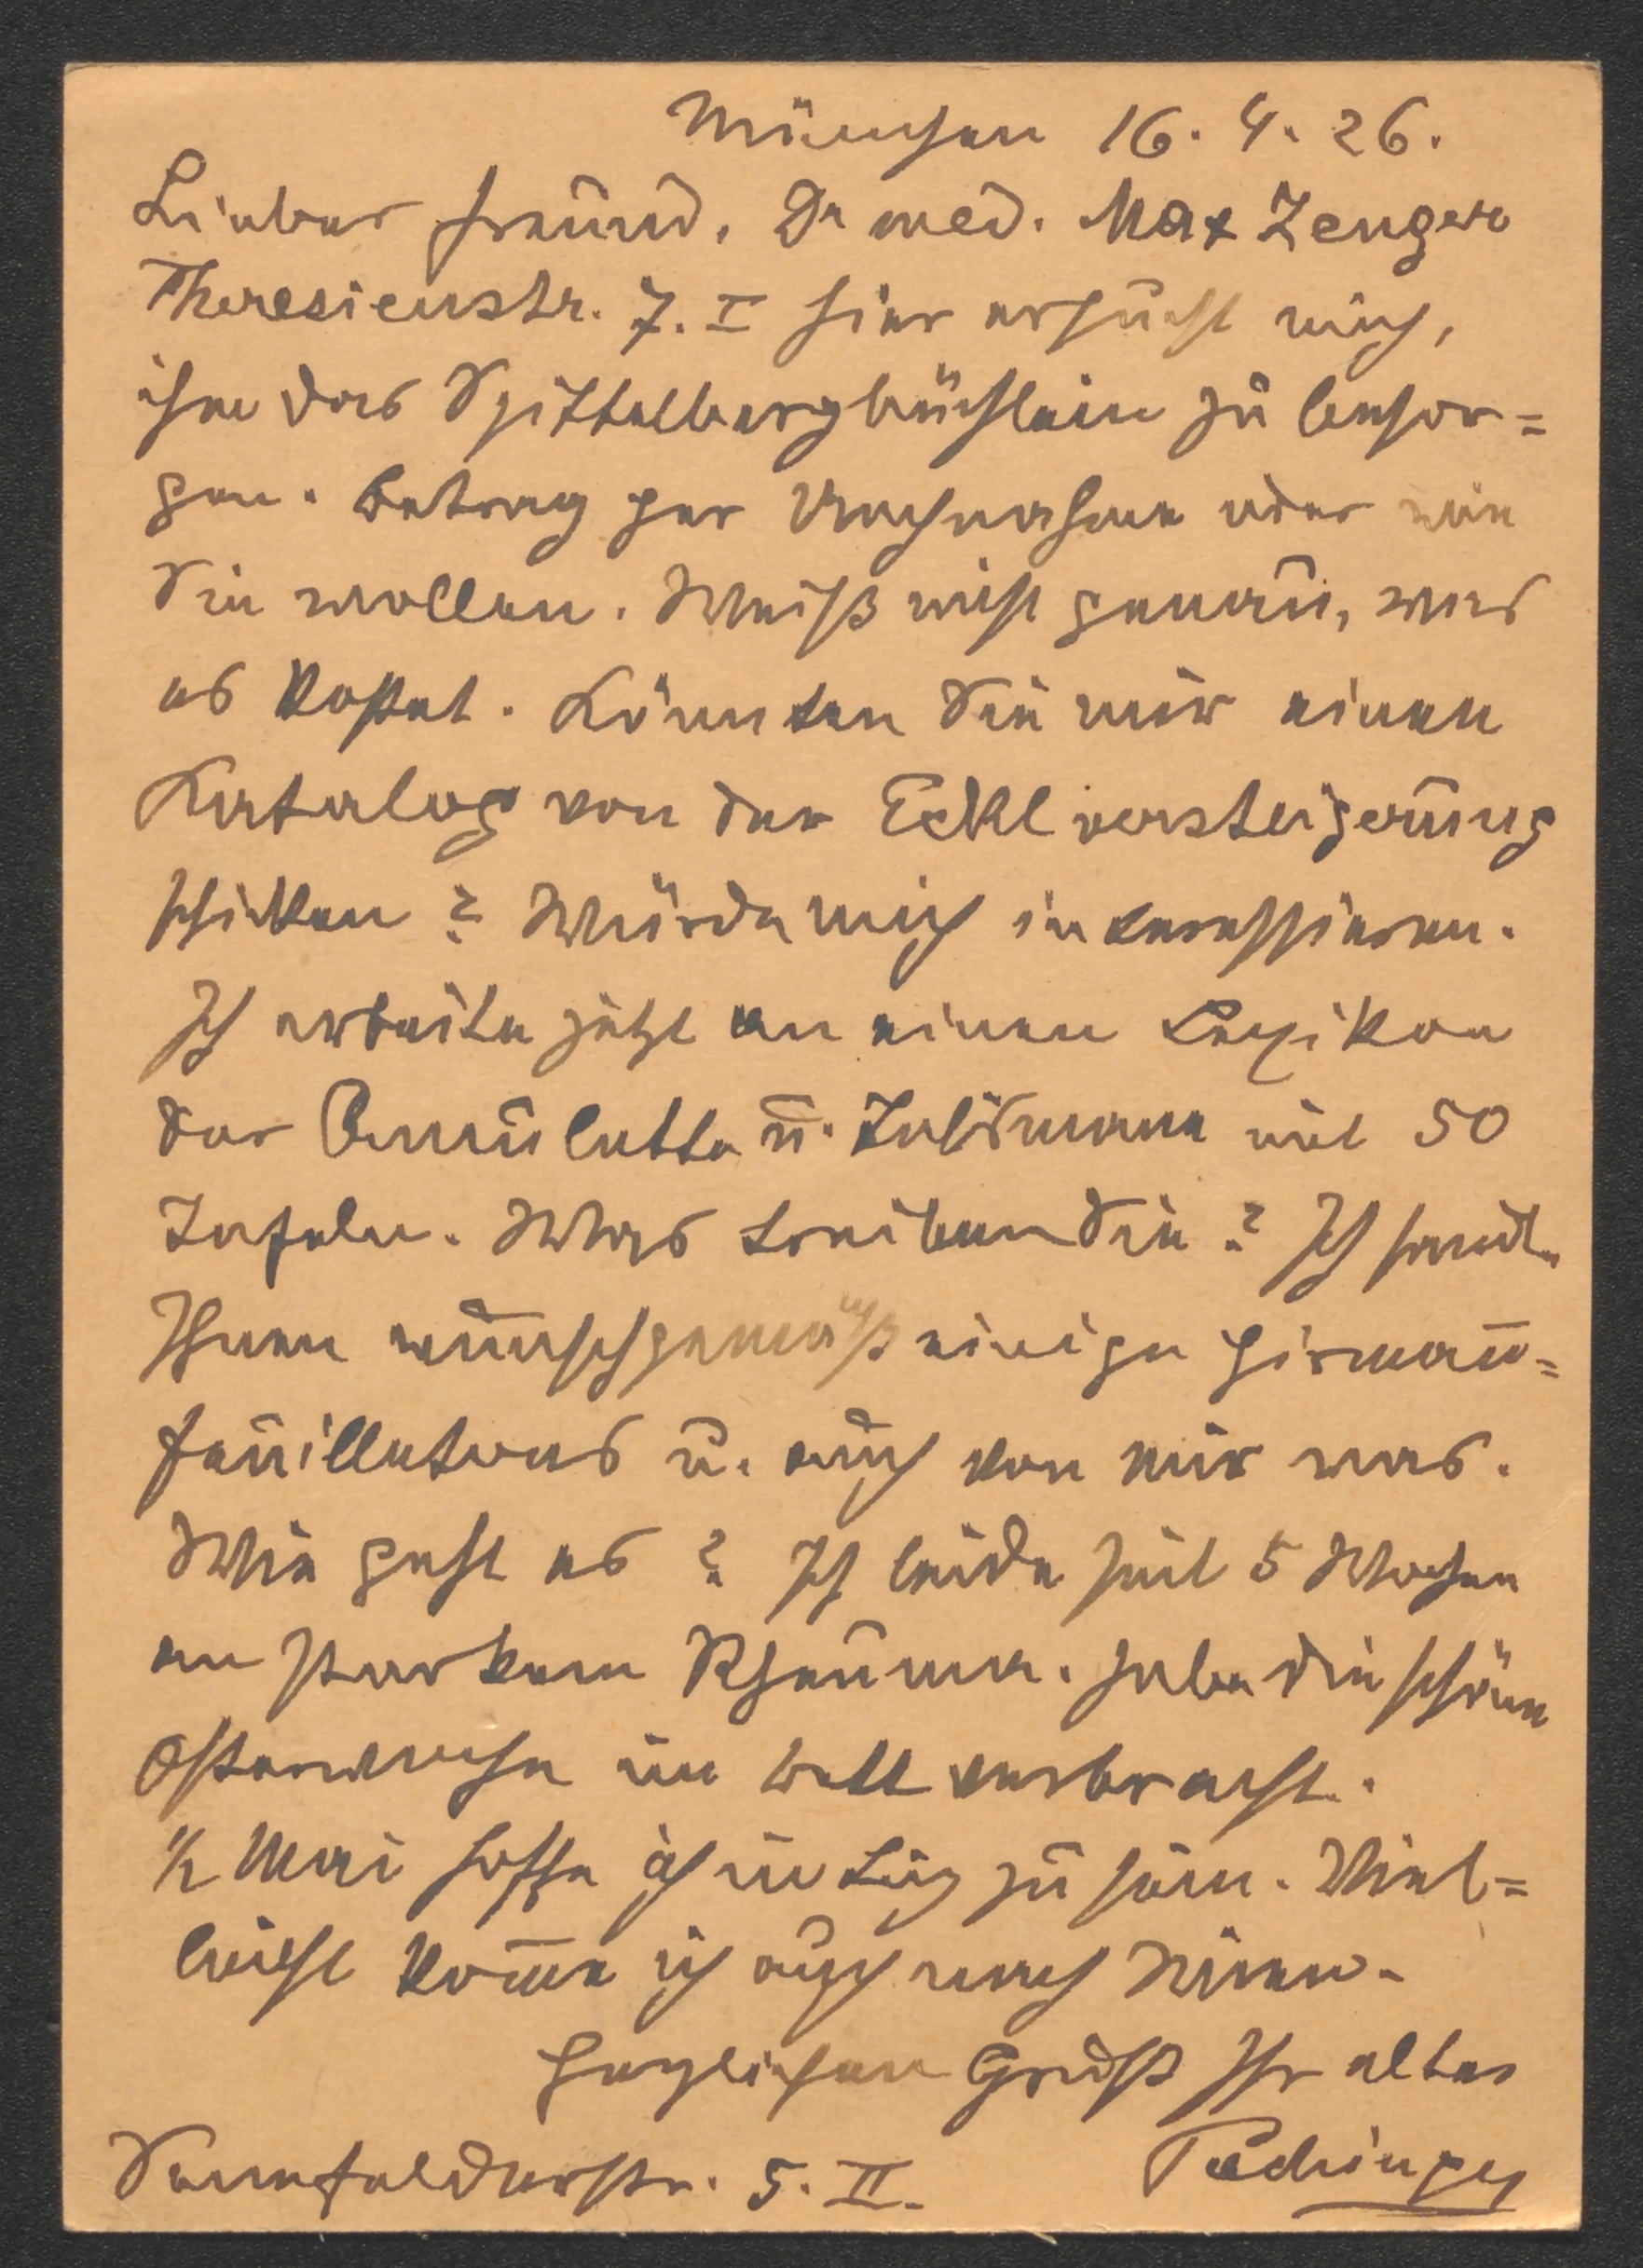 München 16. 4. 26.
Lieber Freund, Dr med. Max Zenger
Theresienstr. 7. I hier ersucht mich,
ihm das Spittelbergbüchlein zu besor=
gen. Betrag per Nachnahme oder wie
Sie wollen. Weiß nicht genau, was
es kostet. Könnten Sie mir einen
Katalog von der Eckl versteigerung
schicken? Würde mich interessieren.
Ich arbeite jetzt an einen Lexikon
der Amulette u. Talismane mit 50
Tafeln. Was treiben Sie? Ich sandte
Ihnen wunschgemäß einige
feuilletons u. auch von mir was.
Wie geht es? Ich leide seit 5 Wochen
an starkem Rheuma. Habe die schöne
Osterwoche im Bett verbracht.
1/2 Mai hoffe ich in Linz zu sein. Viel=
leicht kom̅e ich auch nach Wien.
Herzlichen Gruß Ihr alter
Pachinger
Sennfelderstr. 5. II.